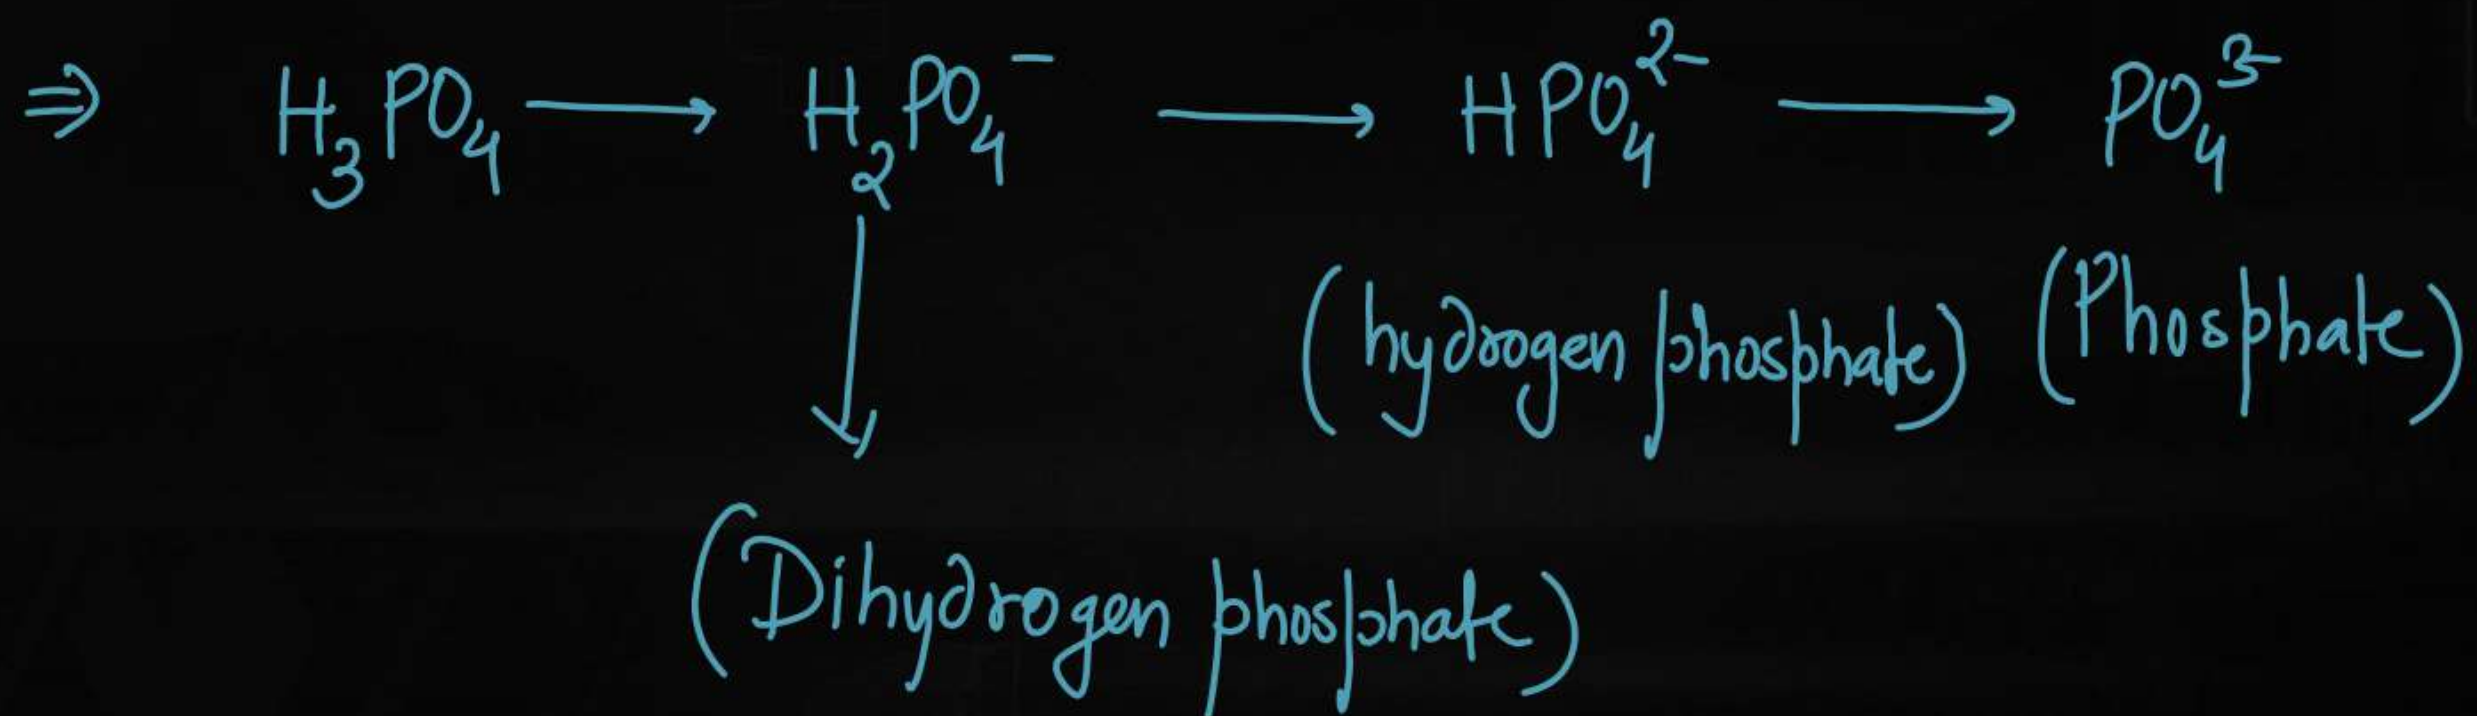 ⇒ H₃PO₄ ⟶ H₂PO₄⁻ ⟶ HPO₄²⁻ ⟶ PO₄³⁻
(hydrogen phosphate) (Phosphate)
(Dihydrogen phosphate)